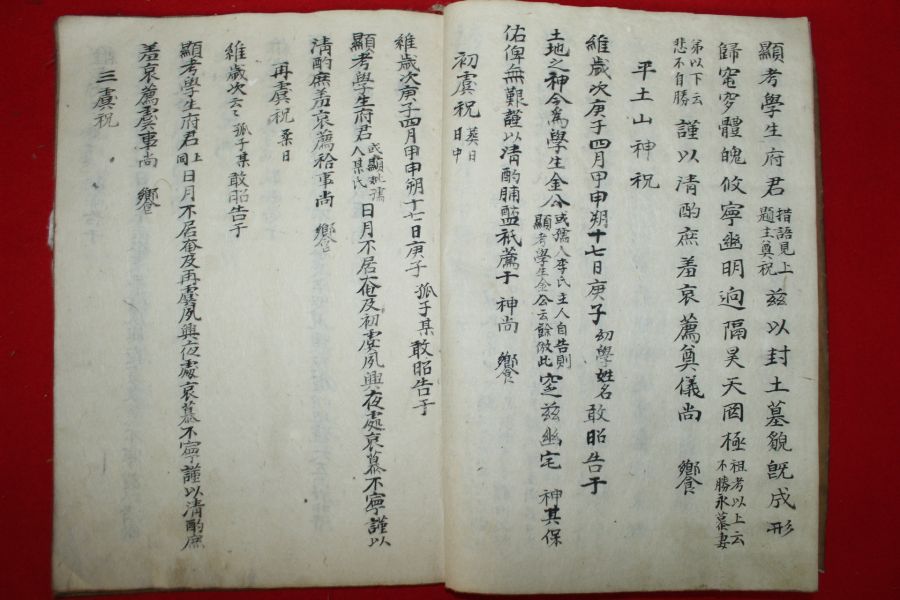 顯考學生府君 措語見上題主奠祝 玆以封土墓貌旣成形
歸窀穸體魄攸寧幽明逈隔昊天罔極 祖考以上云不勝永慕妻
弟以下云悲不自勝 謹以清酌庶羞哀薦奠儀尚 饗
平土山神祝
維歲次庚子四月甲申朔十七日庚子 幼學姓名 敢昭告于
土地之神今爲學生金公 或孺人李氏主人自告則顯考學生金公云餘倣此 窆玆幽宅 神其保
佑俾無艱謹以清酌脯醢祗薦于神尚 饗
初虞祝 葬日日中
維歲次庚子四月甲申朔十七日庚子 孤子某敢昭告于
顯考學生府君 或顯妣孺人某氏 日月不居奄及初虞夙興夜處哀慕不寧謹以
清酌庶羞哀薦祫事尚 饗
再虞祝 柔日
維歲次云云 孤子某敢昭告于
顯考學生府君 上同 日月不居奄及再虞夙興夜處哀慕不寧謹以清酌庶
羞哀薦虞事尚 饗
三虞祝